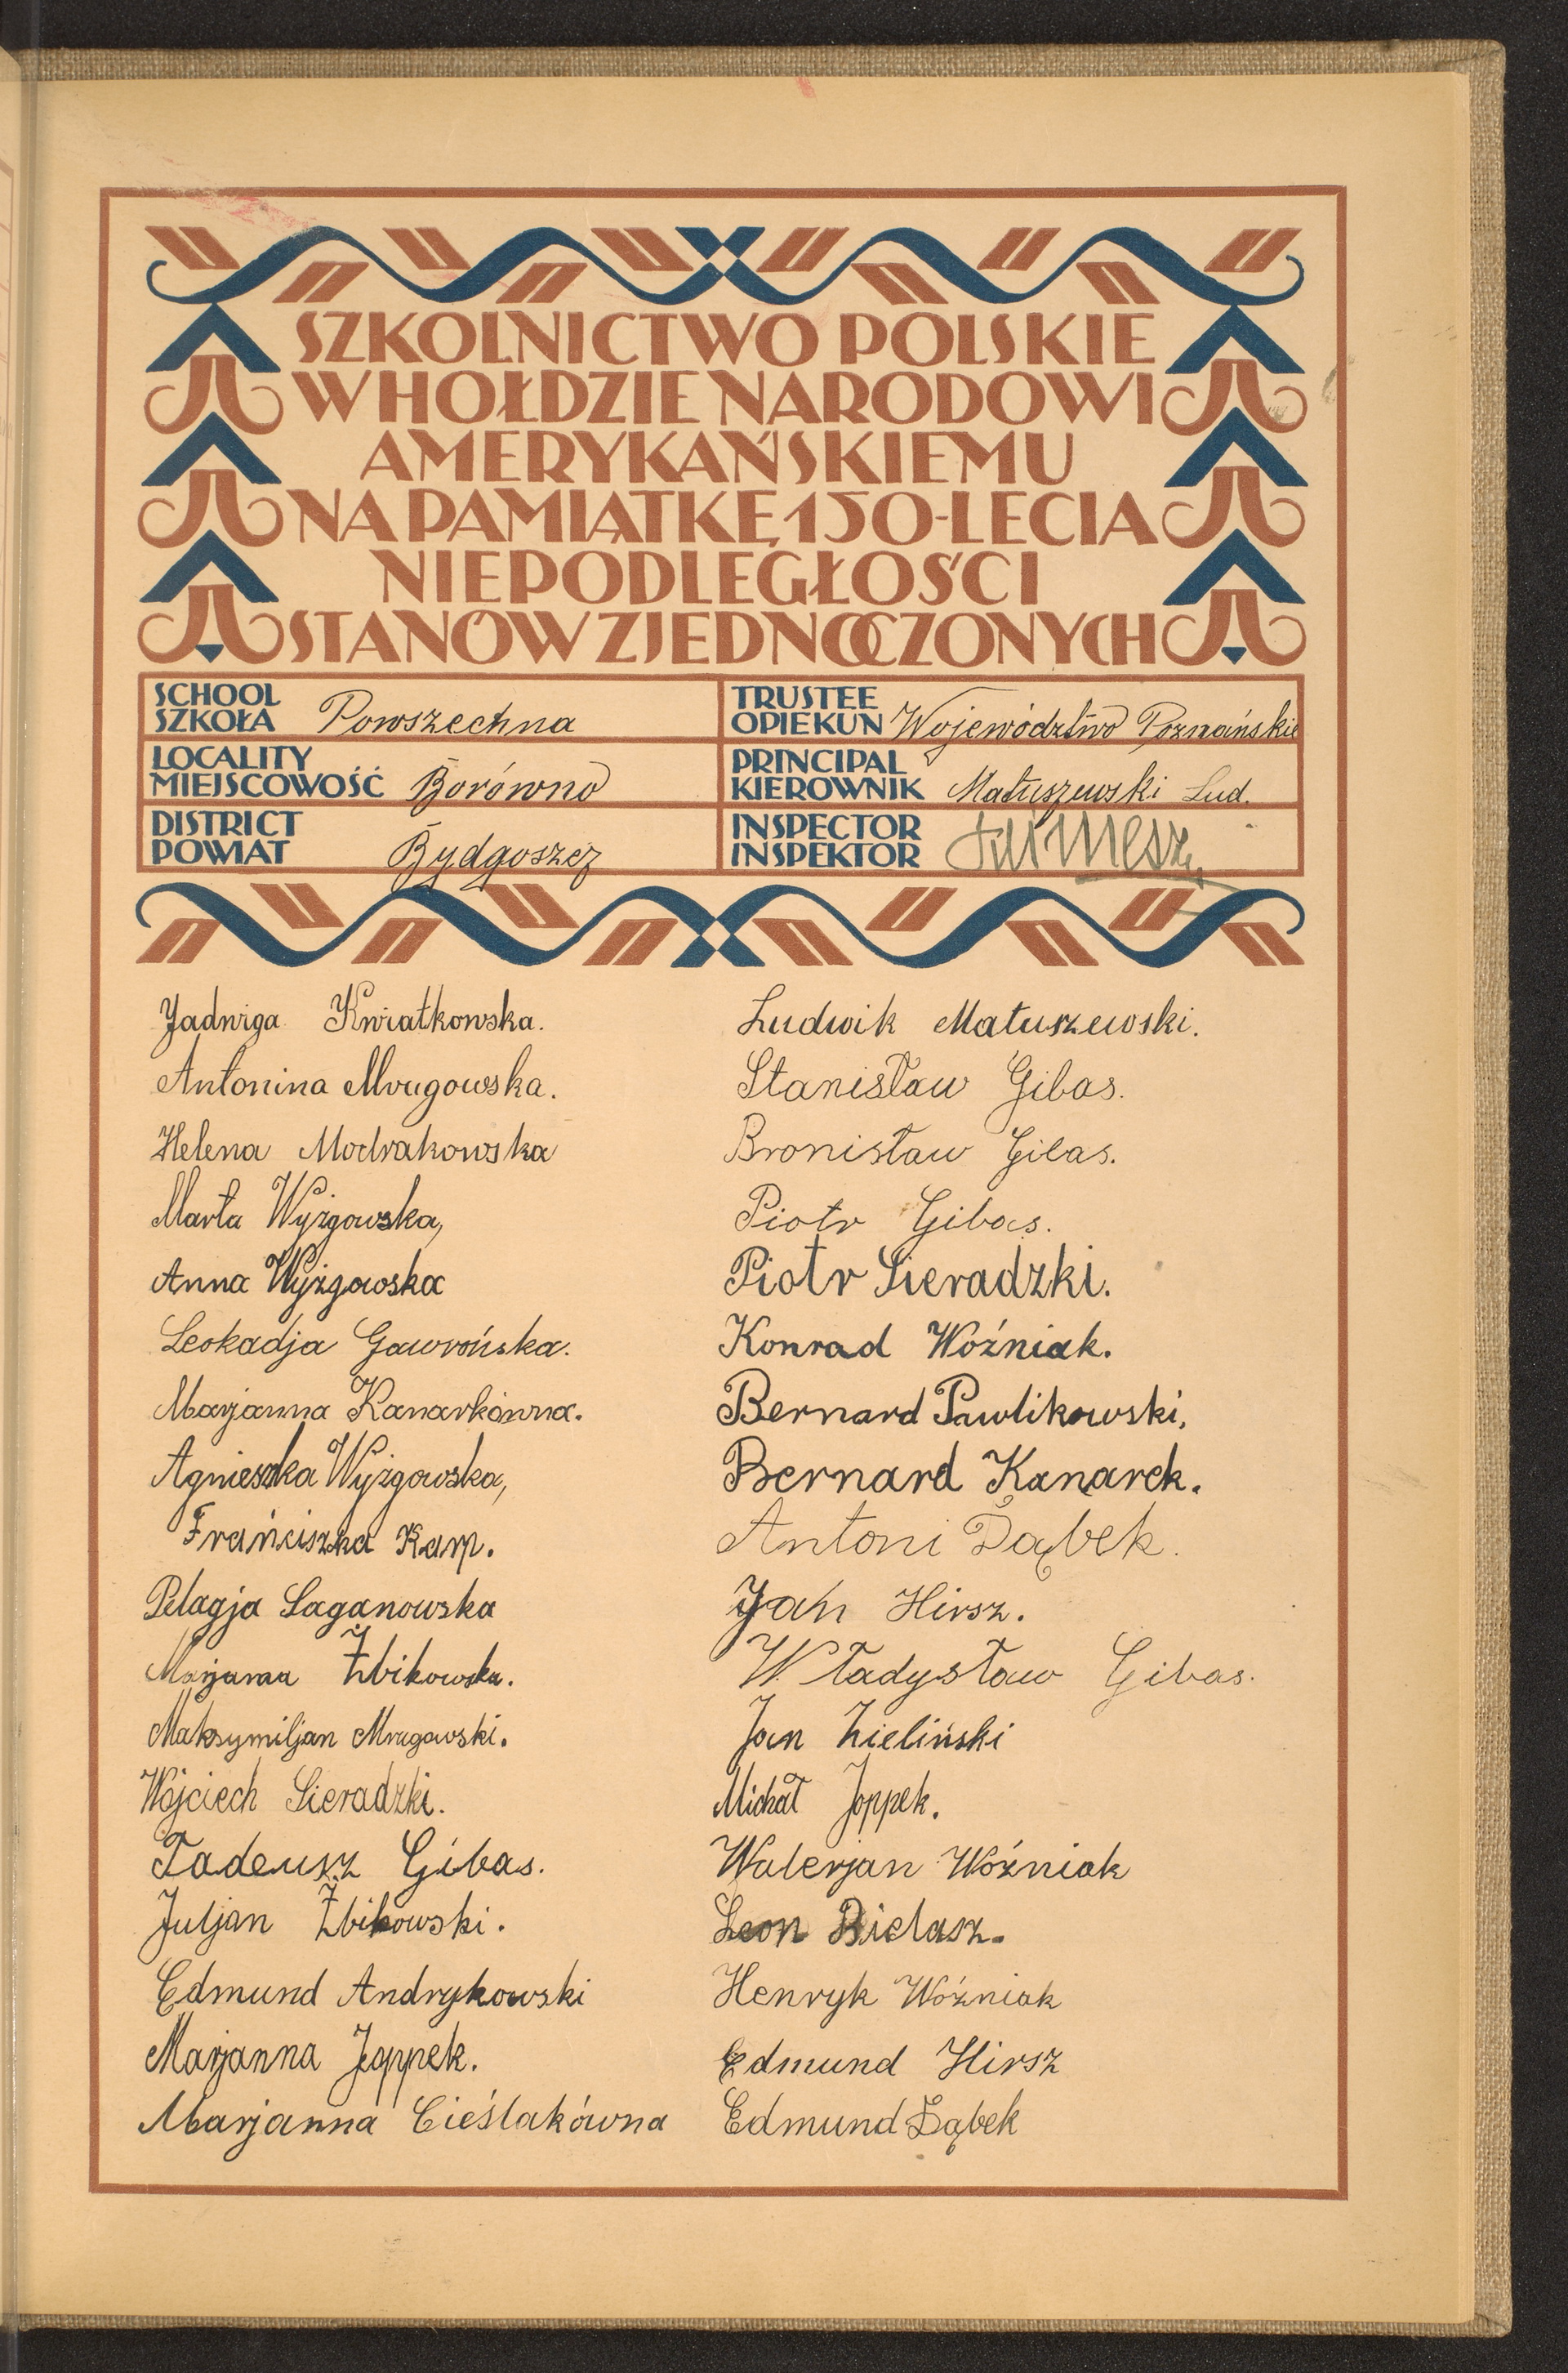 SZKOLNICTWO POLSKIE
W HOŁDZIE NARODOWI
AMERYKAŃSKIEMU
NA PAMIĄTKĘ 150-LECIA
NIEPODLEGŁOŚCI
STANÓW ZJEDNOCZONYCH
SCHOOL
SZKOŁA Powszechna
TRUSTEE
OPIEKUN Województwo Poznańskie
LOCALITY
MIEJSCOWOŚĆ Borówno
PRINCIPAL
KIEROWNIK Matuszewski Lud.
DISTRICT
POWIAT Bydgoszcz
INSPECTOR
INSPEKTOR
Jadwiga Kwiatkowska.
Antonina Mrugowska.
Helena Modrakowska
Marta Wyżgowska,
Anna Wyżgowska
Leokadja Gawrońska.
Marjanna Kanarkówna.
Agnieszka Wyżgowska,
Frańciszka Karp.
Pelagja Laganowska
Marjanna Żbikowska.
Maksymiljan Mrugowski.
Wojciech Sieradzki.
Tadeusz Gibas.
Juljan Żbikowski.
Edmund Andrykowski
Marjanna Joppek.
Marjanna Cieślakówna
Ludwik Matuszewski.
Stanisław Gibas.
Bronisław Gibas.
Piotr Gibas.
Piotr Sieradzki.
Konrad Woźniak.
Bernard Pawlikowski,
Bernard Kanarek.
Antoni Dąbek.
Jan Hirsz.
Władysław Gibas.
Jan Zieliński
Michał Joppek.
Walerjan Woźniak
Leon Bielasz.
Henryk Woźniak
Edmund Hirsz
Edmund Dąbek